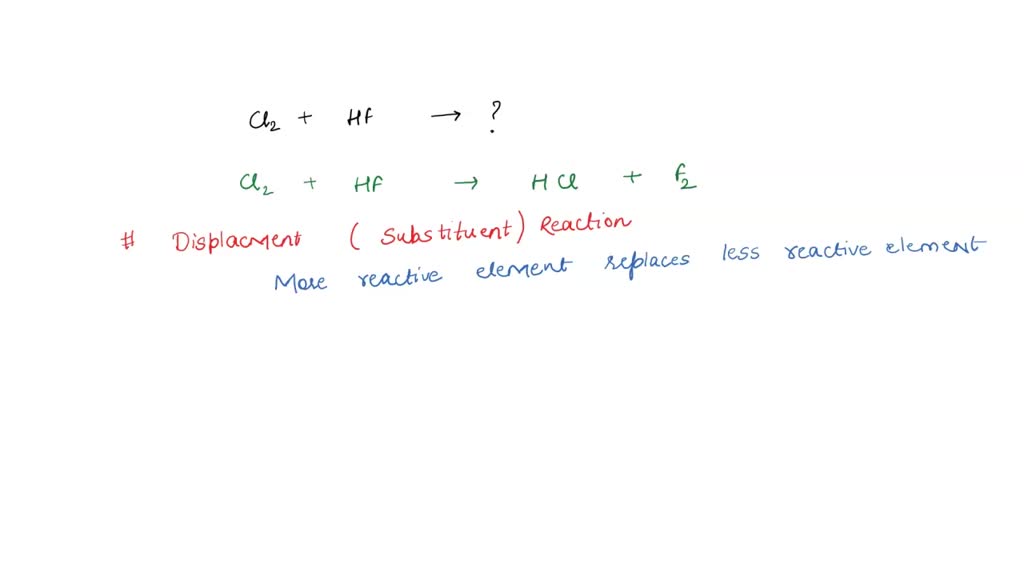 Cl₂ + HF → ?
Cl₂ + HF → HCl + F₂
# Displacment (Substituent) Reaction
More reactive element replaces less reactive element